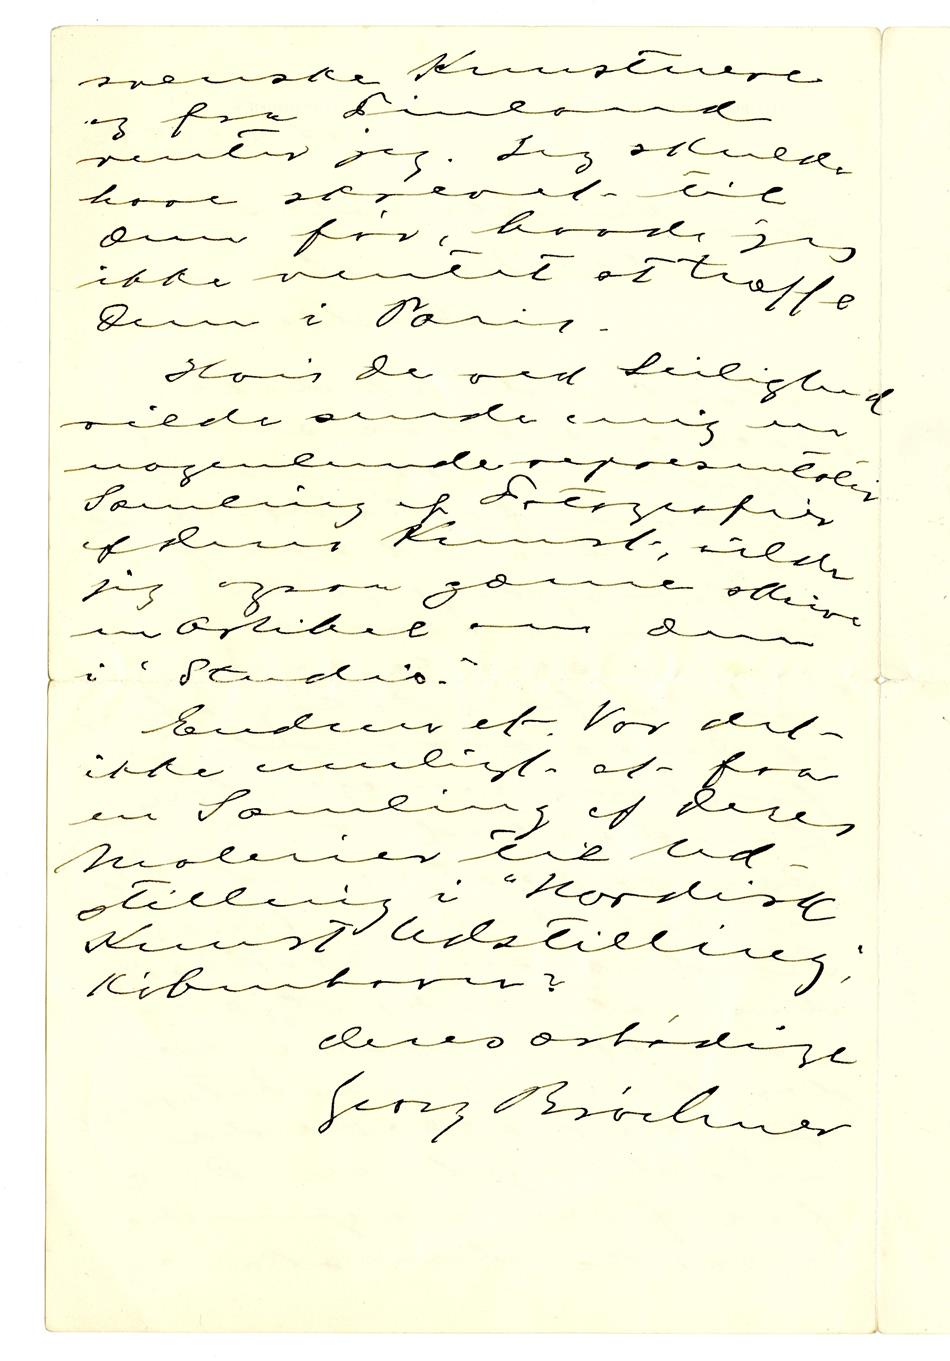 svenske Kunstnere
og fra Finland
venter jeg. Jeg skulde
have skrevet til
Dem før, havde jeg
ikke ventet at træffe
Dem i Paris.
Hvis De ved Leilighed
vilde sende mig en
nogenlunde repræsentativ
Samling af Fotografier
af deres Kunst, vilde
jeg ogsaa gærne skrive
en Artikel om Dem
i "Studio".
Endnu et. Var det
ikke muligt at faa
en Samling af Deres
Malerier til Ud-
stilling i "Nordisk
Kunst Udstilling" i
København?
Deres ærbødige
Georg Brøchner